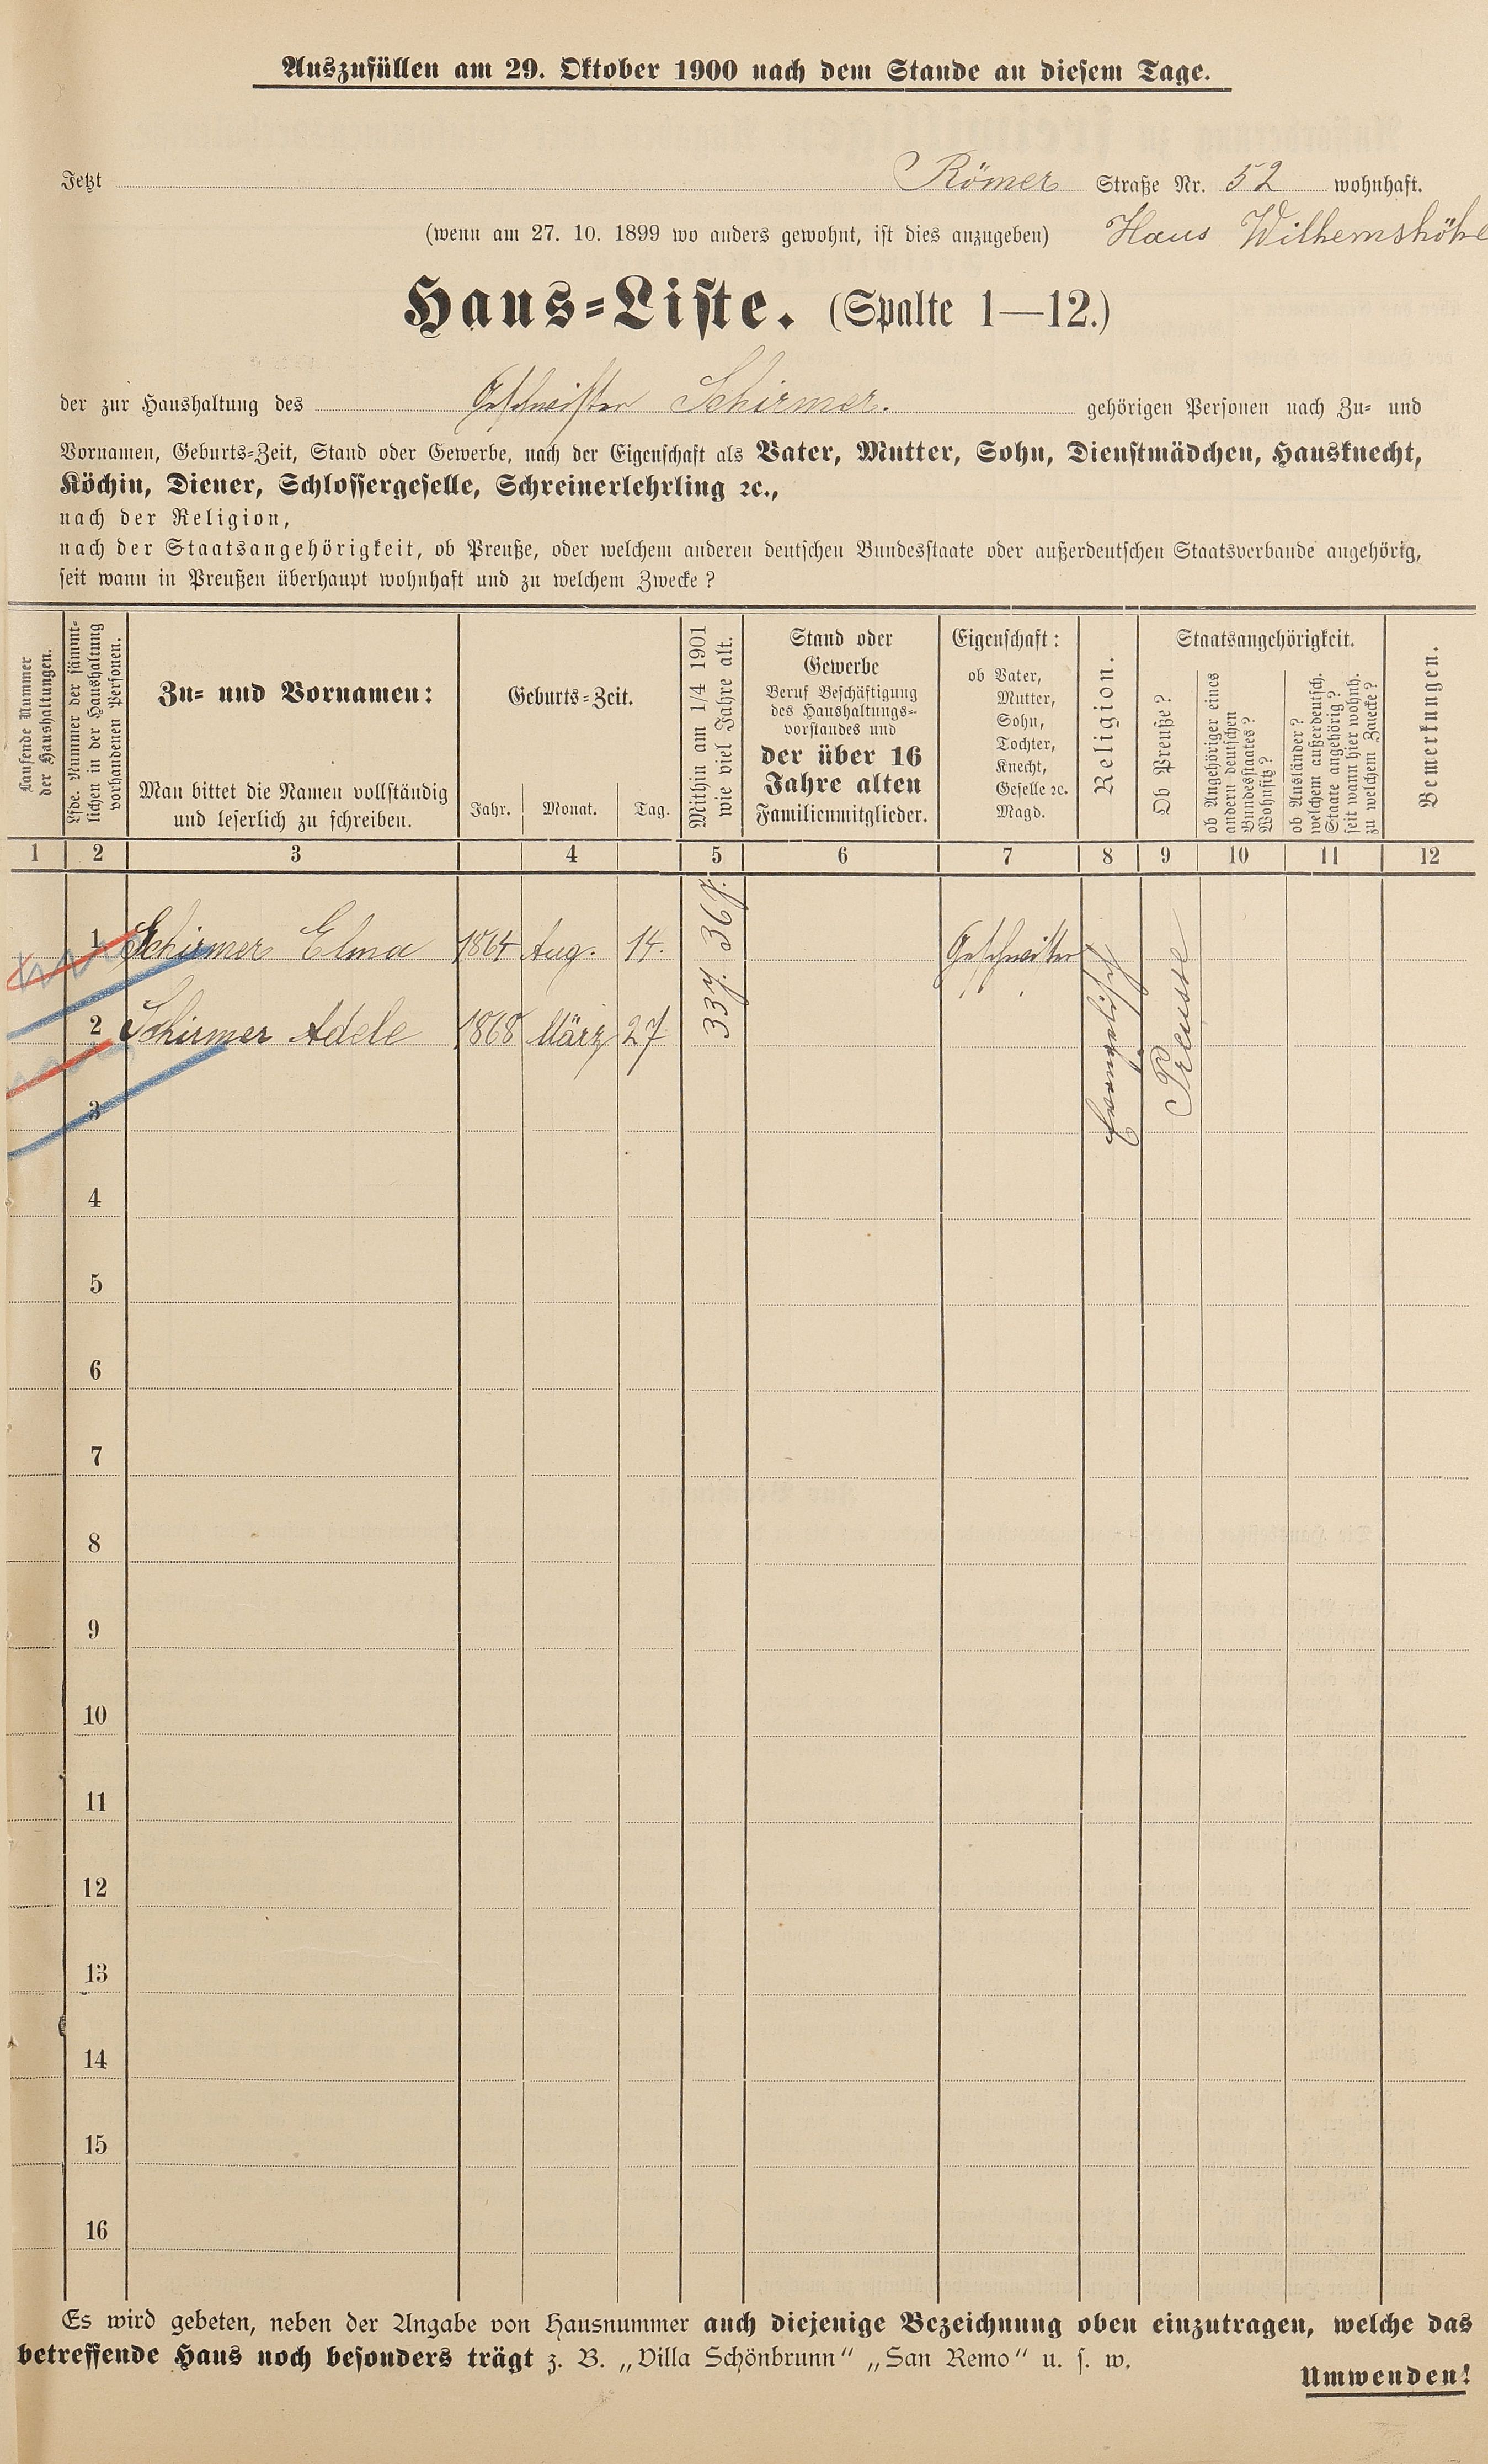 Auszufüllen am 29. Oktober 1900 nach dem Stande an diesem Tage.
Jetzt Römer Straße Nr. 52 wohnhaft.
(wenn am 27. 10. 1899 wo anders gewohnt, ist dies anzugeben) Haus Wilhemshöhe
Haus-Liste. (Spalte 1—12.)
der zur Haushaltung des Geschwister Schirmer. gehörigen Personen nach Zu- und
Vornamen, Geburts-Zeit, Stand oder Gewerbe, nach der Eigenschaft als Vater, Mutter, Sohn, Dienstmädchen, Hausknecht,
Köchin, Diener, Schlossergeselle, Schreinerlehrling ꝛc.,
nach der Religion,
nach der Staatsangehörigkeit, ob Preuße, oder welchem anderen deutschen Bundesstaate oder außerdeutschen Staatsverbande angehörig,
seit wann in Preußen überhaupt wohnhaft und zu welchem Zwecke?
Laufende Nummer
der Haushaltungen.
Lfde. Nummer der sämmt-
lichen in der Haushaltung
vorhandenen Personen.
Zu- und Vornamen:
Man bittet die Namen vollständig
und leserlich zu schreiben.
Geburts-Zeit.
Jahr. Monat. Tag.
Mithin am 1/4 1901
wie viel Jahre alt.
Stand oder
Gewerbe
Beruf Beschäftigung
des Haushaltungs-
vorstandes und
der über 16
Jahre alten
Familienmitglieder.
Eigenschaft:
ob Vater,
Mutter,
Sohn,
Tochter,
Knecht,
Geselle ꝛc.
Magd.
Religion.
Staatsangehörigkeit.
Ob Preuße?
ob Angehöriger eines
andern deutschen
Bundesstaates?
Wohnsitz?
ob Ausländer?
welchem außerdeutsch.
Staate angehörig?
seit wann hier wohnh.
zu welchem Zwecke?
Bemerkungen.
1 2 3 4 5 6 7 8 9 10 11 12
1 Schirmer Elma 1864 Aug. 14. 36 J. Geschwister
2 Schirmer Adele 1868 März 27 33 J. " "
evangelisch
Preusse
3
4
5
6
7
8
9
10
11
12
13
14
15
16
Es wird gebeten, neben der Angabe von Hausnummer auch diejenige Bezeichnung oben einzutragen, welche das
betreffende Haus noch besonders trägt z. B. „Villa Schönbrunn“ „San Remo“ u. s. w.
Umwenden!